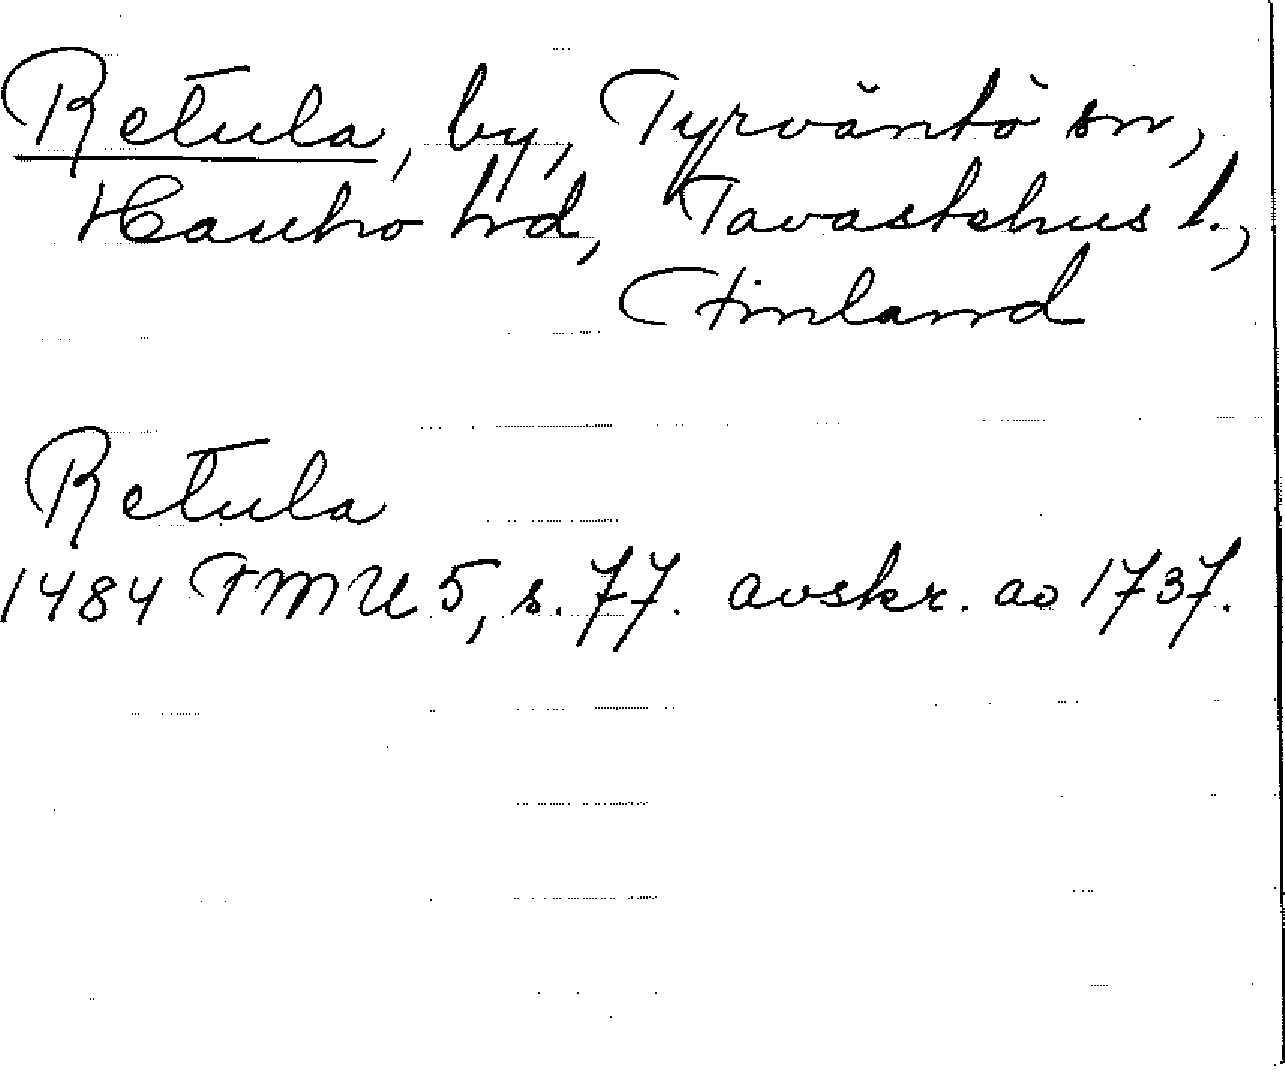 Retula, by, Tyrväntö sn,
Hauho hd, Tavastehus l.,
Finland
Retula
1484 FMU 5, s. 77. avskr. ao 1737.